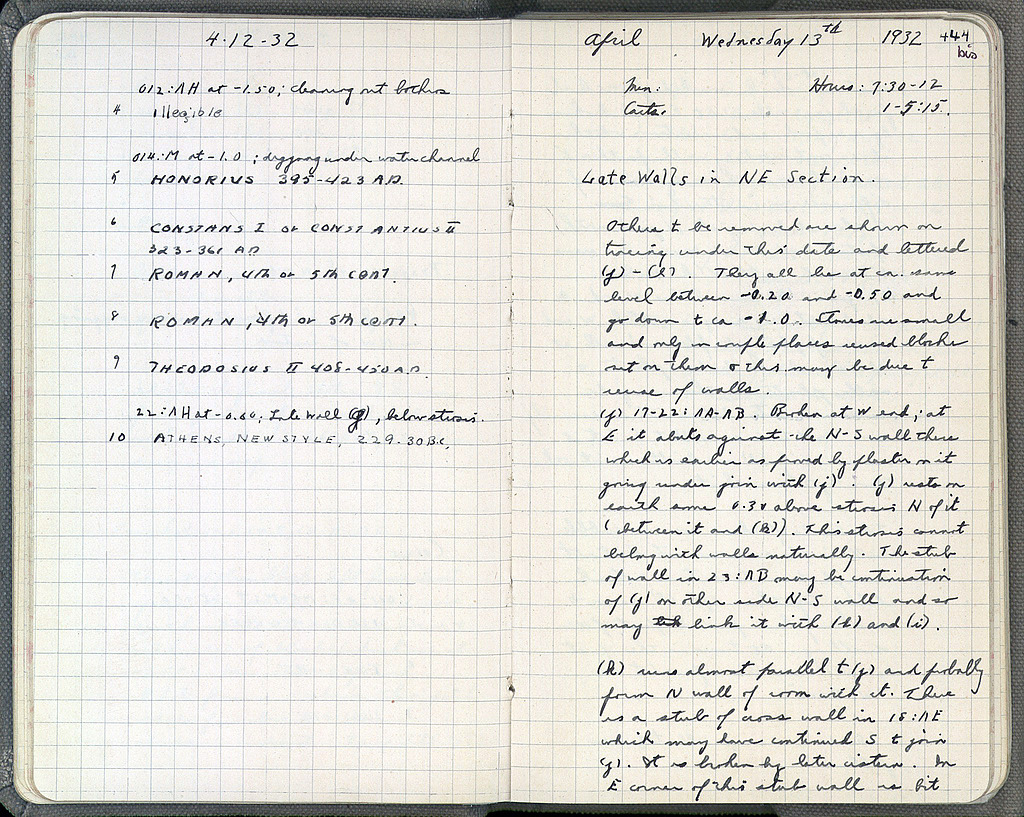 4-12-32
012:ΛH at -1.50; cleaning out bothros
4 illegible
014:M at -1.0; digging under water channel
5 HONORIUS 395-423 A.D.
6 CONSTANS I or CONSTANTIUS II
323-361 AD
7 ROMAN, 4th or 5th CENT.
8 ROMAN, 4th or 5th CENT.
9 THEODOSIUS II 408-450 A.D.
22:ΛH at -0.60; Late Wall (g), below stosis.
10 ATHENS, NEW STYLE, 229-30 B.C.
April Wednesday 13th 1932 444
bis
Men: Hours: 7:30-12
Carts: 1-5:15.
Late Walls in NE Section.
Others to be removed are shown on
tracing under this date and lettered
(g) - (l). They all lie at ca. same
level between -0.20 and -0.50 and
go down to ca -1.0. Stones are small
and only in couple places reused blocks
set on them & this may be due to
reuse of walls.
(g) 17-22:ΛA-ΛB. Broken at W end; at
E it abuts against the N-S wall there
which is earlier as proved by plaster on it
going under join with (j). (g) rests on
earth some 0.30 above stosis N of it
(between it and (k)). This stosis cannot
belong with walls naturally. The stub
of wall in 23:ΛB may be continuation
of (g) on other side N-S wall and so
may link it with (h) and (i).
(k) runs almost parallel to (g) and probably
form N wall of room with it. There
is a stub of cross wall in 18:ΛE
which may have continued S to join
(g). It is broken by later cistern. In
E corner of this stub wall is bit